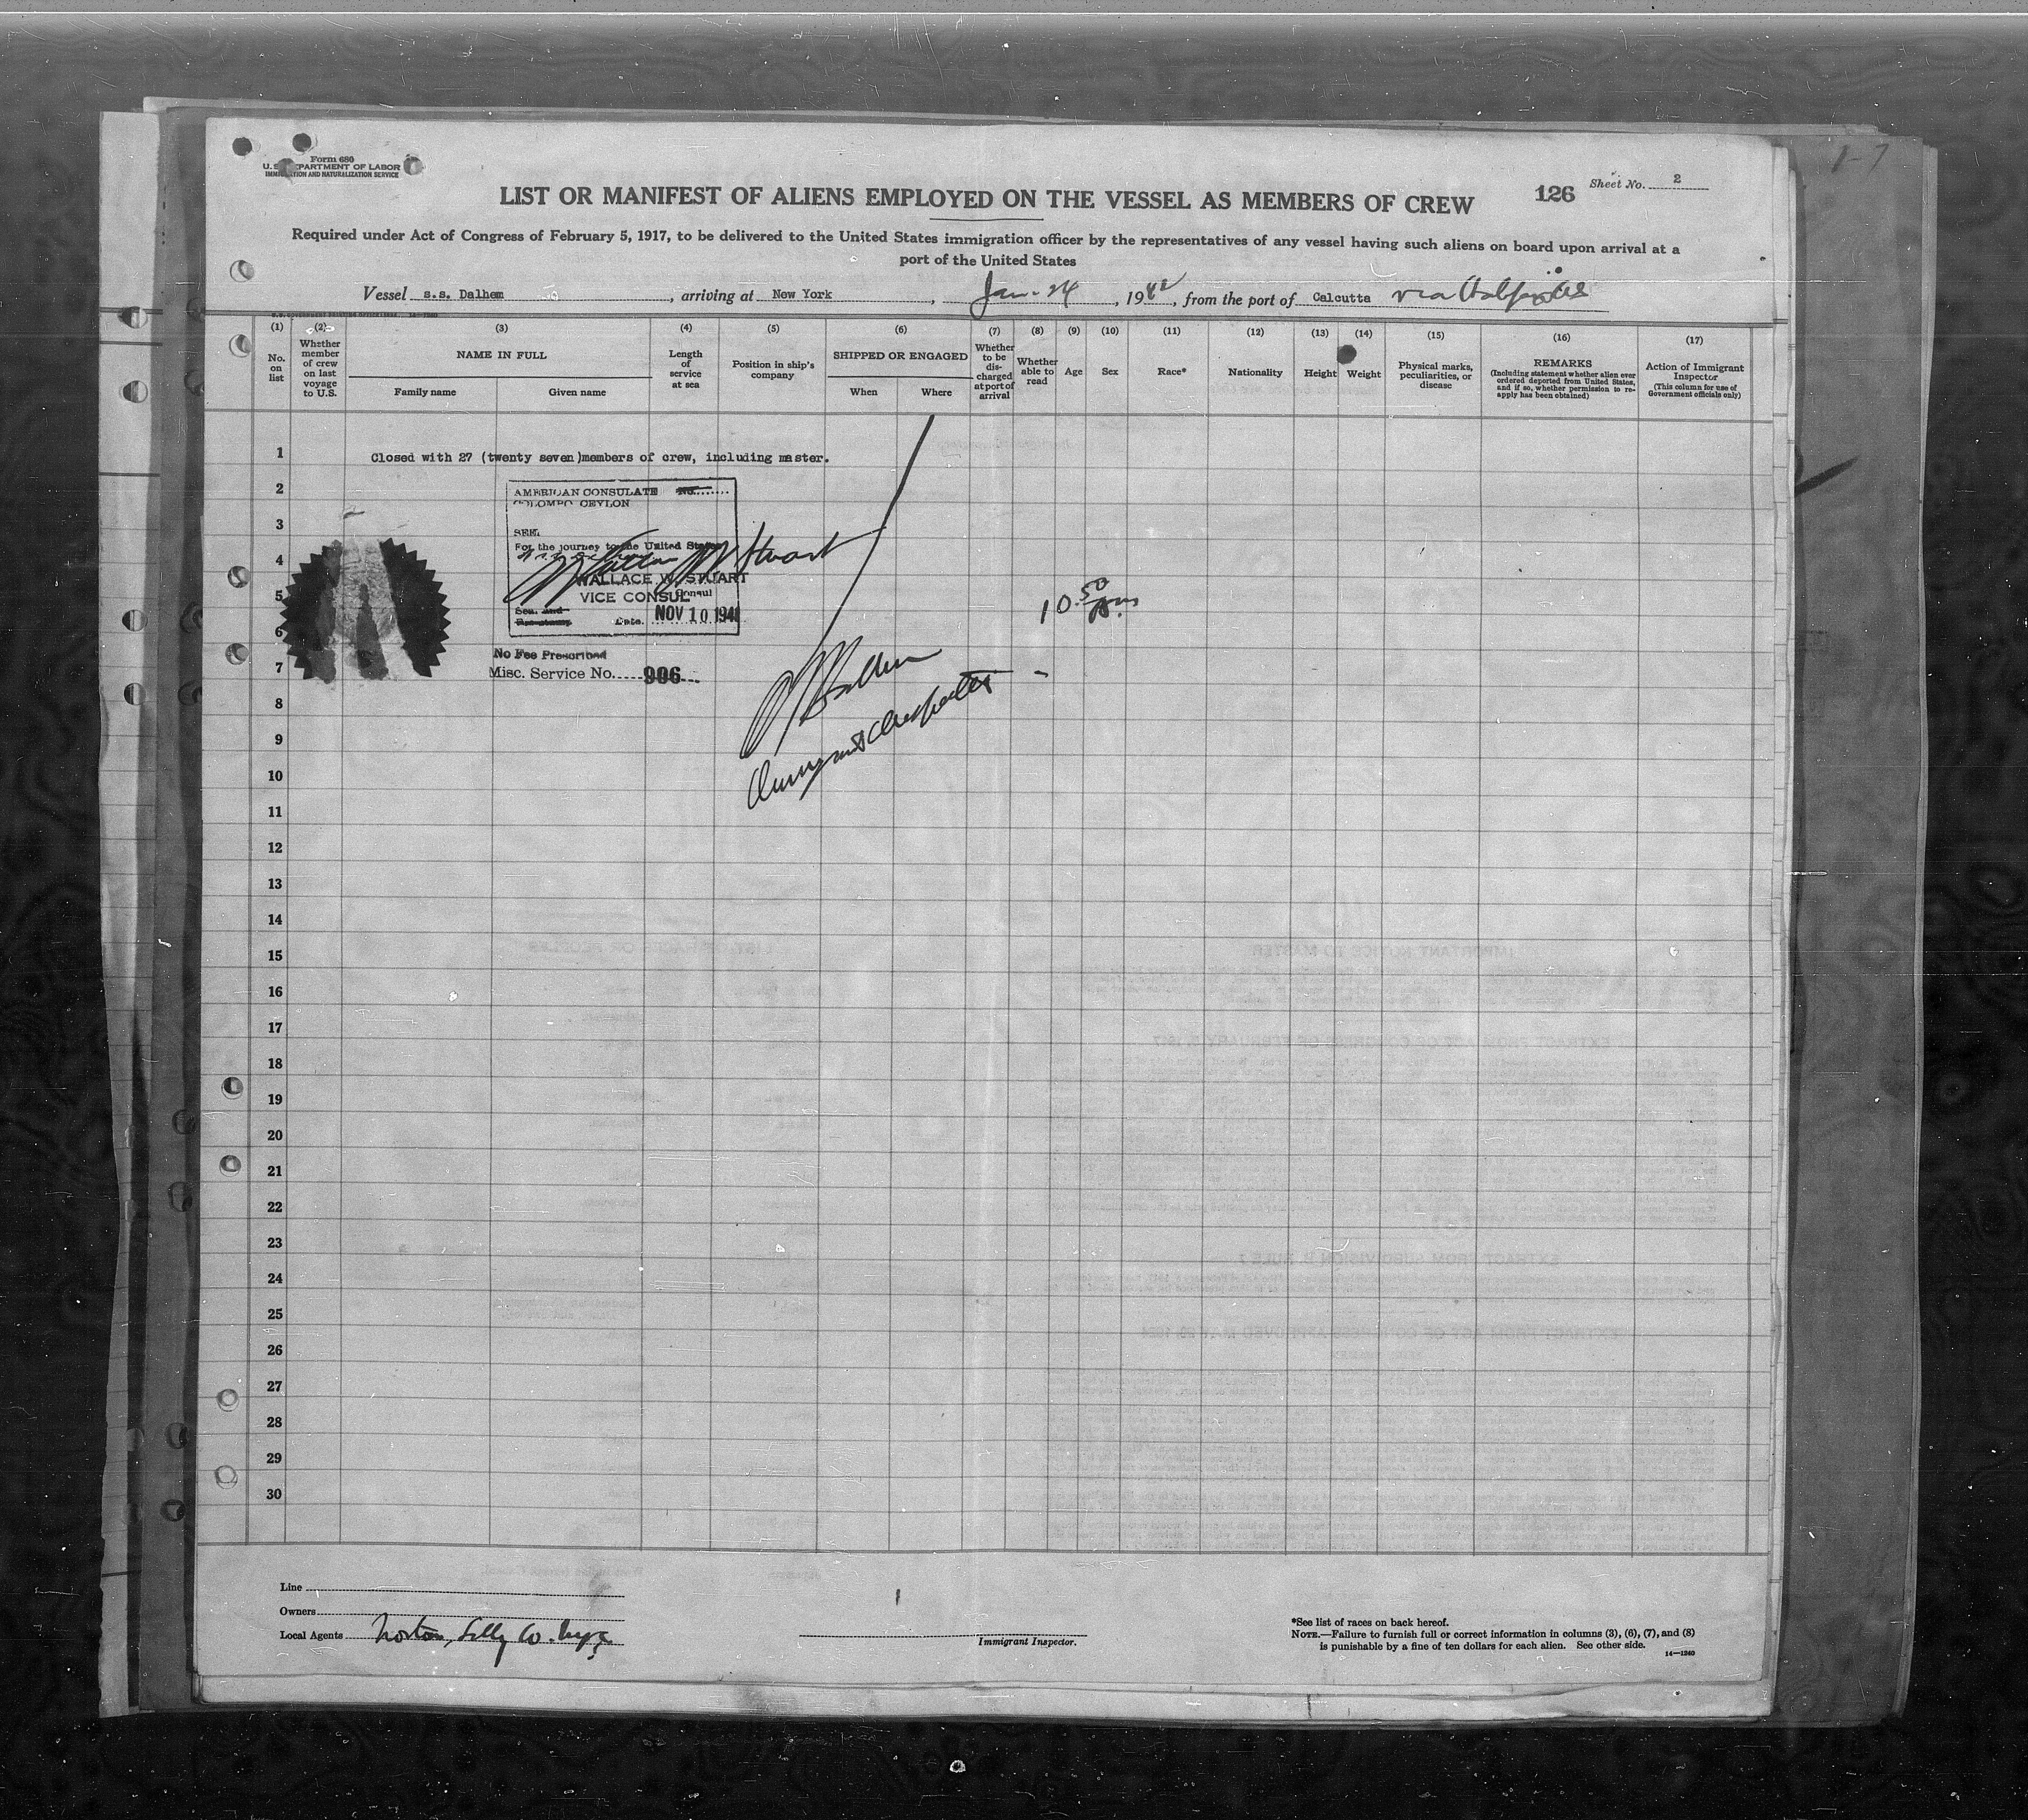 Form 680
U.S. DEPARTMENT OF LABOR
IMMIGRATION AND NATURALIZATION SERVICE
LIST OR MANIFEST OF ALIENS EMPLOYED ON THE VESSEL AS MEMBERS OF CREW
126
Sheet No. 2
Required under Act of Congress of February 5, 1917, to be delivered to the United States immigration officer by the representatives of any vessel having such aliens on board upon arrival at a
port of the United States
Vessel s.s. Dalhem, arriving at New York, Jan. 24, 1942, from the port of Calcutta via
(1) (2) (3) (4) (5) (6) (7) (8) (9) (10) (11) (12) (13) (14) (15) (16) (17)
No. on list
Whether member of crew on last voyage to U.S.
NAME IN FULL
Family name
Given name
Length of service at sea
Position in ship's company
SHIPPED OR ENGAGED
When
Where
Whether to be discharged at port of arrival
Whether able to read
Age
Sex
Race*
Nationality
Height
Weight
Physical marks, peculiarities, or disease
REMARKS
(Including statement whether alien ever ordered deported from United States, and if so, whether permission to re-apply has been obtained)
Action of Immigrant Inspector
(This column for use of Government officials only)
1
Closed with 27 (twenty seven)members of crew, including master.
2
AMERICAN CONSULATE No.
COLOMBO CEYLON
3
SEEN
For the journey to the United States
4
Wallace W Stuart
WALLACE W. STUART
5
VICE CONSUL
Consul
Date. NOV 10 1941
10.50 Am
6
No Fee Prescribed
7
Misc. Service No. 906
8
9
10
11
12
13
14
15
16
17
18
19
20
21
22
23
24
25
26
27
28
29
30
Line
Owners
Local Agents Norton, Lilly Co.
Immigrant Inspector.
*See list of races on back hereof.
NOTE.—Failure to furnish full or correct information in columns (3), (6), (7), and (8)
is punishable by a fine of ten dollars for each alien. See other side.
14—1240